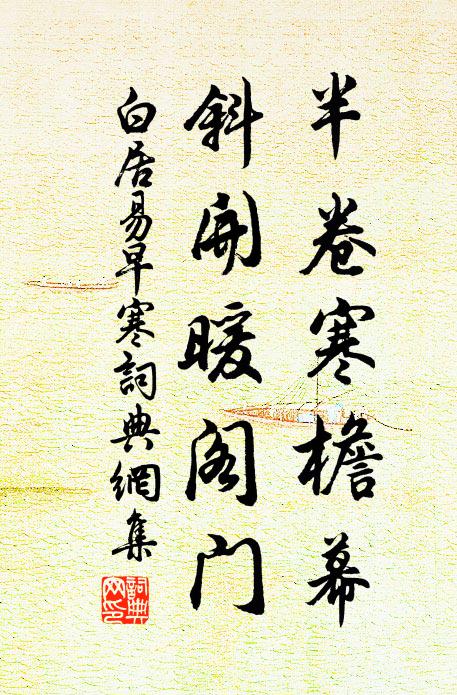 半卷寒檐幕
斜開暖閣門
白居易早寒詞典網集
詞典网印